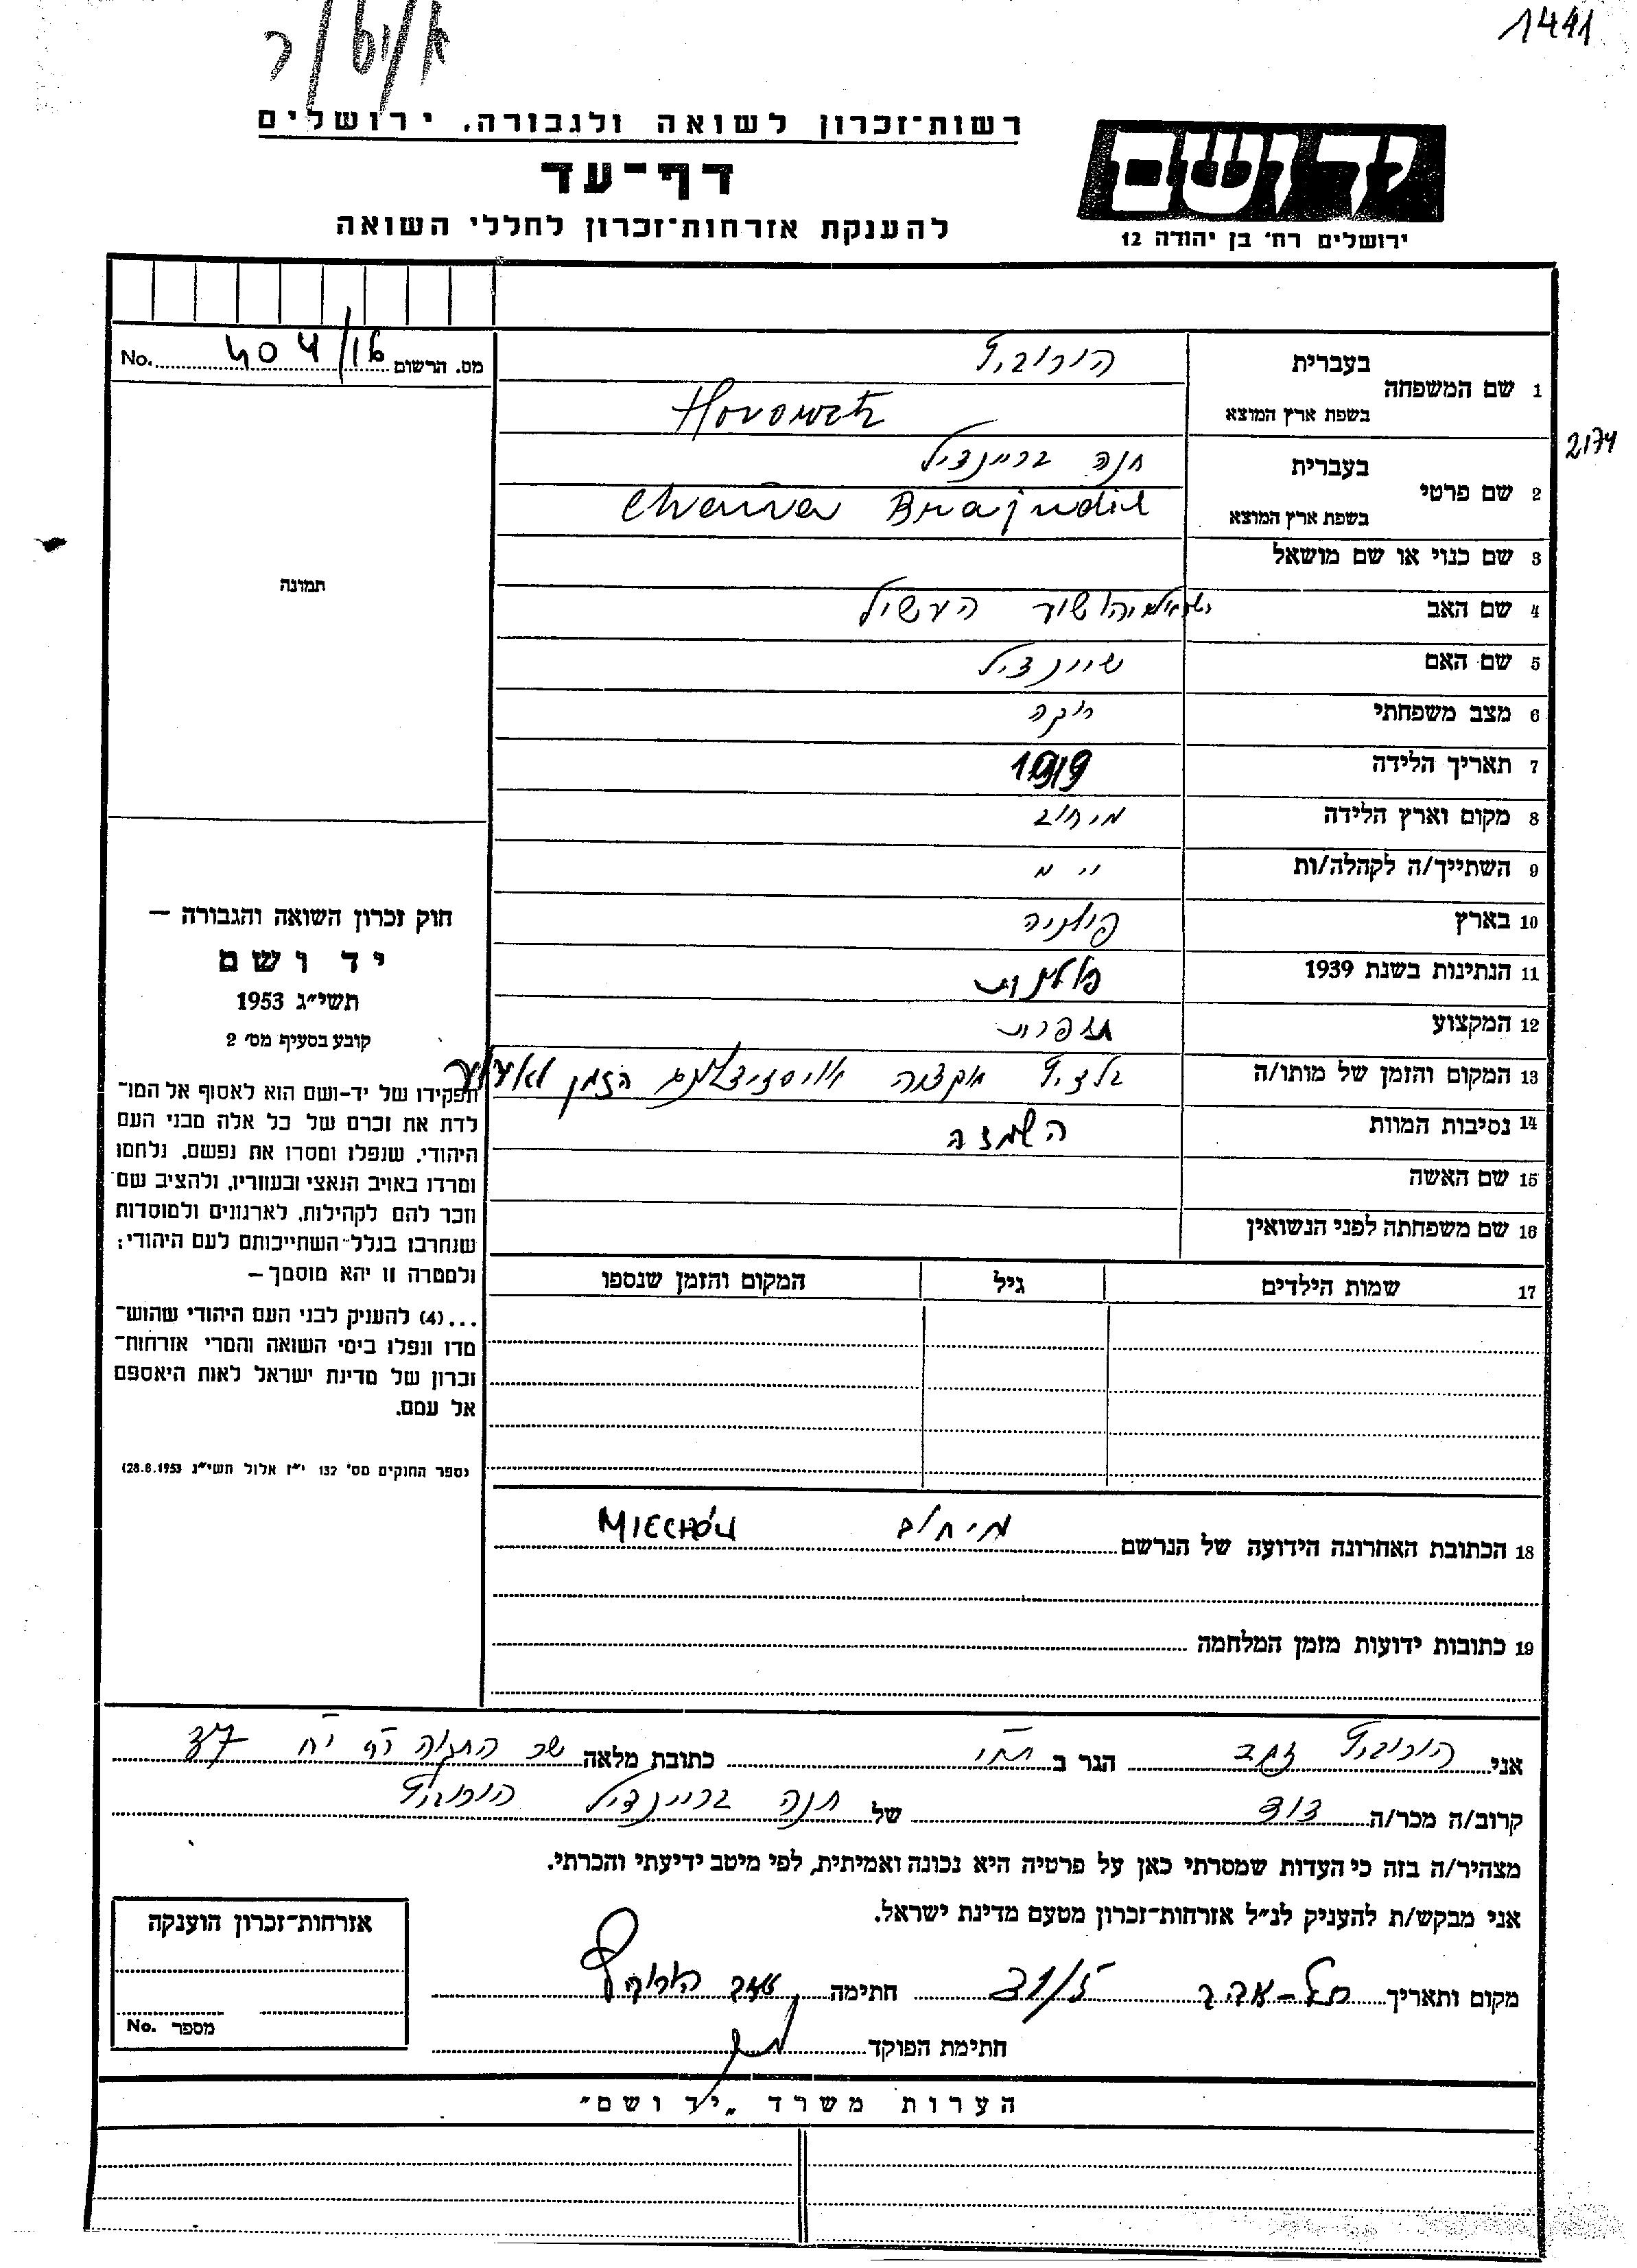 1441
רשות־זכרון לשואה ולגבורה, ירושלים
דף־עד
להענקת אזרחות־זכרון לחללי השואה
יד ושם
ירושלים רח׳ בן יהודה 12
מס. הרשום 404/16 No.
1 שם המשפחה
בעברית הורוביץ
בשפת ארץ המוצא Horowitz
2174
2 שם פרטי
בעברית חנה בריינדיל
בשפת ארץ המוצא Chana Brajndil
3 שם כנוי או שם מושאל
4 שם האב יהושע העשיל
5 שם האם שיינדיל
6 מצב משפחתי רוקה
7 תאריך הלידה 1919
8 מקום וארץ הלידה מיחוב
9 השתייך/ה לקהלה/ות
10 בארץ פולניה
11 הנתינות בשנת 1939 פולנית
12 המקצוע תופרת
13 המקום והזמן של מותו/ה הזמן לא ידוע
14 נסיבות המוות השמדה
15 שם האשה
16 שם משפחתה לפני הנשואין
17 שמות הילדים גיל המקום והזמן שנספו
18 הכתובת האחרונה הידועה של הנרשם מיחוב MIECHÓW
19 כתובות ידועות מזמן המלחמה
תמונה
חוק זכרון השואה והגבורה —
יד ושם
תשי״ג 1953
קובע בסעיף מס׳ 2
תפקידו של יד-ושם הוא לאסוף אל המו־
לדת את זכרם של כל אלה מבני העם
היהודי, שנפלו ומסרו את נפשם, נלחמו
ומרדו באויב הנאצי ובעוזריו, ולהציב שם
וזכר להם לקהילות, לארגונים ולמוסדות
שנחרבו בגלל השתייכותם לעם היהודי;
ולמטרה זו יהא מוסמך —
...(4) להעניק לבני העם היהודי שהוש־
מדו ונפלו בימי השואה והמרי אזרחות־
זכרון של מדינת ישראל לאות היאספם
אל עמם.
(ספר החוקים מס׳ 132 י״ז אלול תשי״ג 28.8.1953)
אני הורוביץ זאב הגר ב כתובת מלאה
קרוב/ה מכר/ה דוד של חנה בריינדיל הורוביץ
מצהיר/ה בזה כי העדות שמסרתי כאן על פרטיה היא נכונה ואמיתית, לפי מיטב ידיעתי והכרתי.
אני מבקש/ת להעניק לנ״ל אזרחות־זכרון מטעם מדינת ישראל.
מקום ותאריך תל-אביב חתימה זאב הורוביץ
חתימת הפוקד
אזרחות־זכרון הוענקה
מספר No.
הערות משרד „יד ושם״